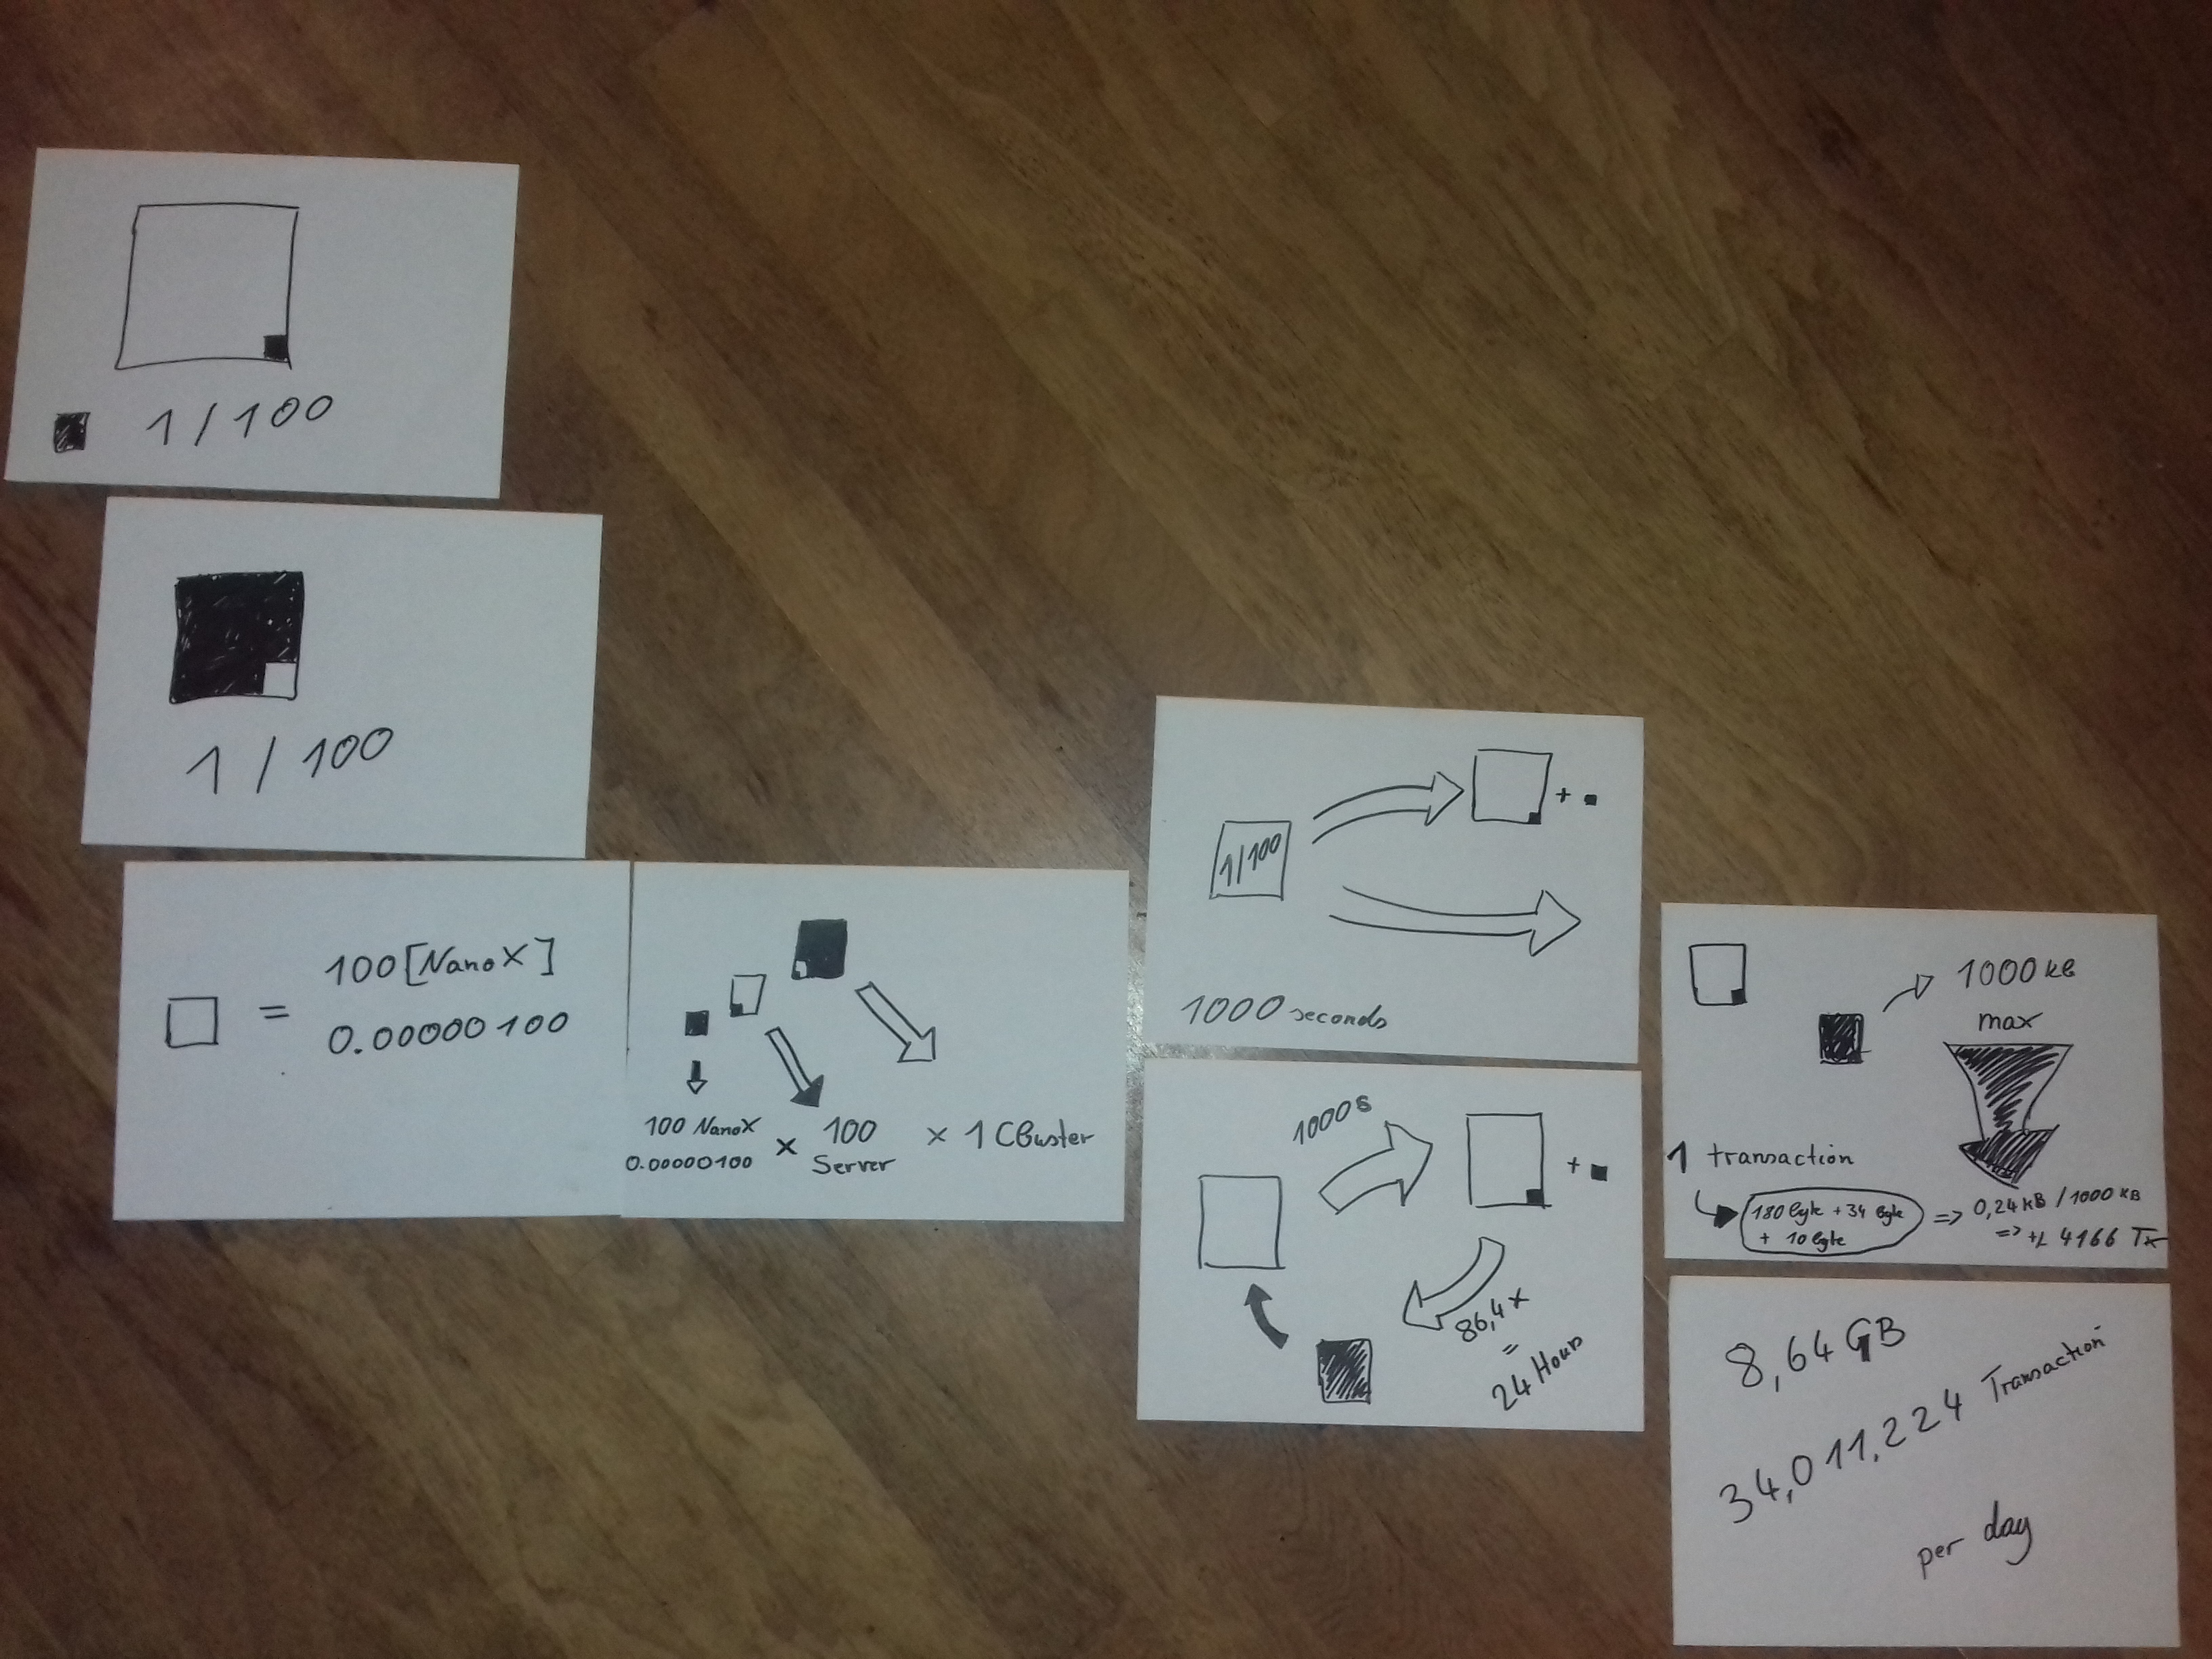 1/100
1/100
=
100 [NanoX]
0.00000100
100 NanoX
0.00000100
x
100
Server
x 1 Cluster
1/100
+
1000 seconds
1000 s
+
86,4 x
=
24 Hours
1000 kB
max
1 transaction
180 byte + 34 byte
+ 10 byte
=> 0,24 kB / 1000 kB
=> +/- 4166 Tx
8,64 GB
34,011,224 Transaction
per day